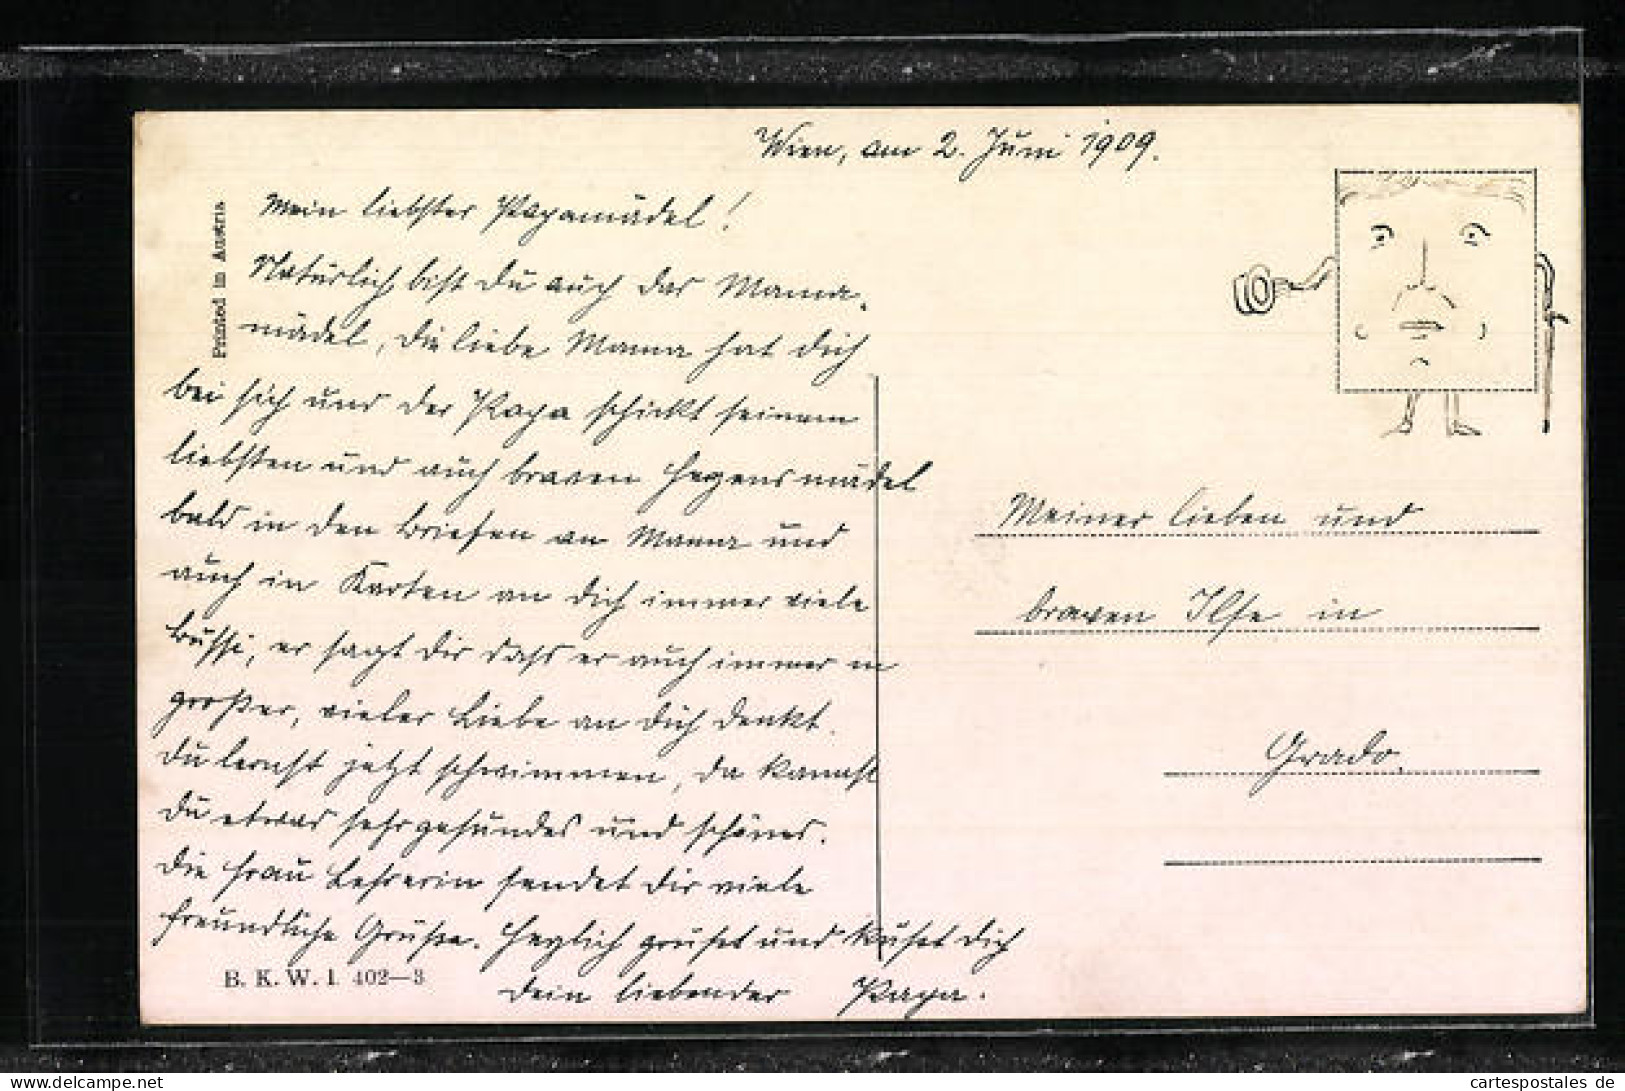 Wien, am 2. Juni 1909.
Mein liebster Papamädel!
Natürlich bist du auch das Mama-
mädel, die liebe Mama hat dich
bei sich und der Papa schickt seinem
liebsten und auch braven Herzensmädel
bald in den Briefen an Mama und
auch in Karten an dich immer viele
Bussi, er sagt dir dass er auch immer in
großer, vieler Liebe an dich denkt.
Du lernst jetzt schwimmen, da kannst
du etwas sehr gesundes und schönes.
Die Frau Lehrerin sendet dir viele
freundliche Grüße. Herzlich grüßt und küßt dich
dein liebender Papa.
Printed in Austria
B. K. W. I. 402—3
Meiner lieben und
braven Ilse in
Grado.
www.delcampe.net
cartespostales de